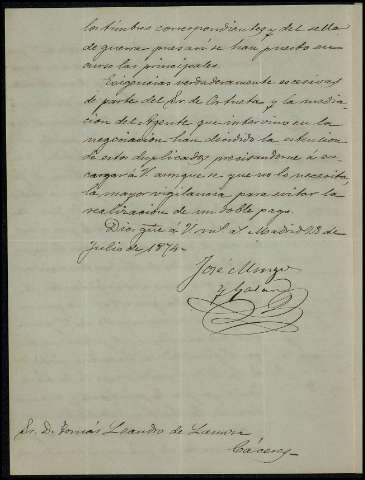 los timbres correspondientes y del sello
de guerra pues aún se han puesto en
curso las principales.
Exigencias verdaderamente escesivas
de parte del Sr. de y la media
cion del Agente que intervino en la
negociacion han la
de estos duplicados precisandome á en
cargar á V. aunque se que no lo necesita,
la mayor vigilancia para evitar la
realizacion de un doble pago.
Dios gue á V. m.s a.s Madrid 28 de
Julio de 1874.
José
y Galan
Sr. D. Tomás Leandro de
Cáceres